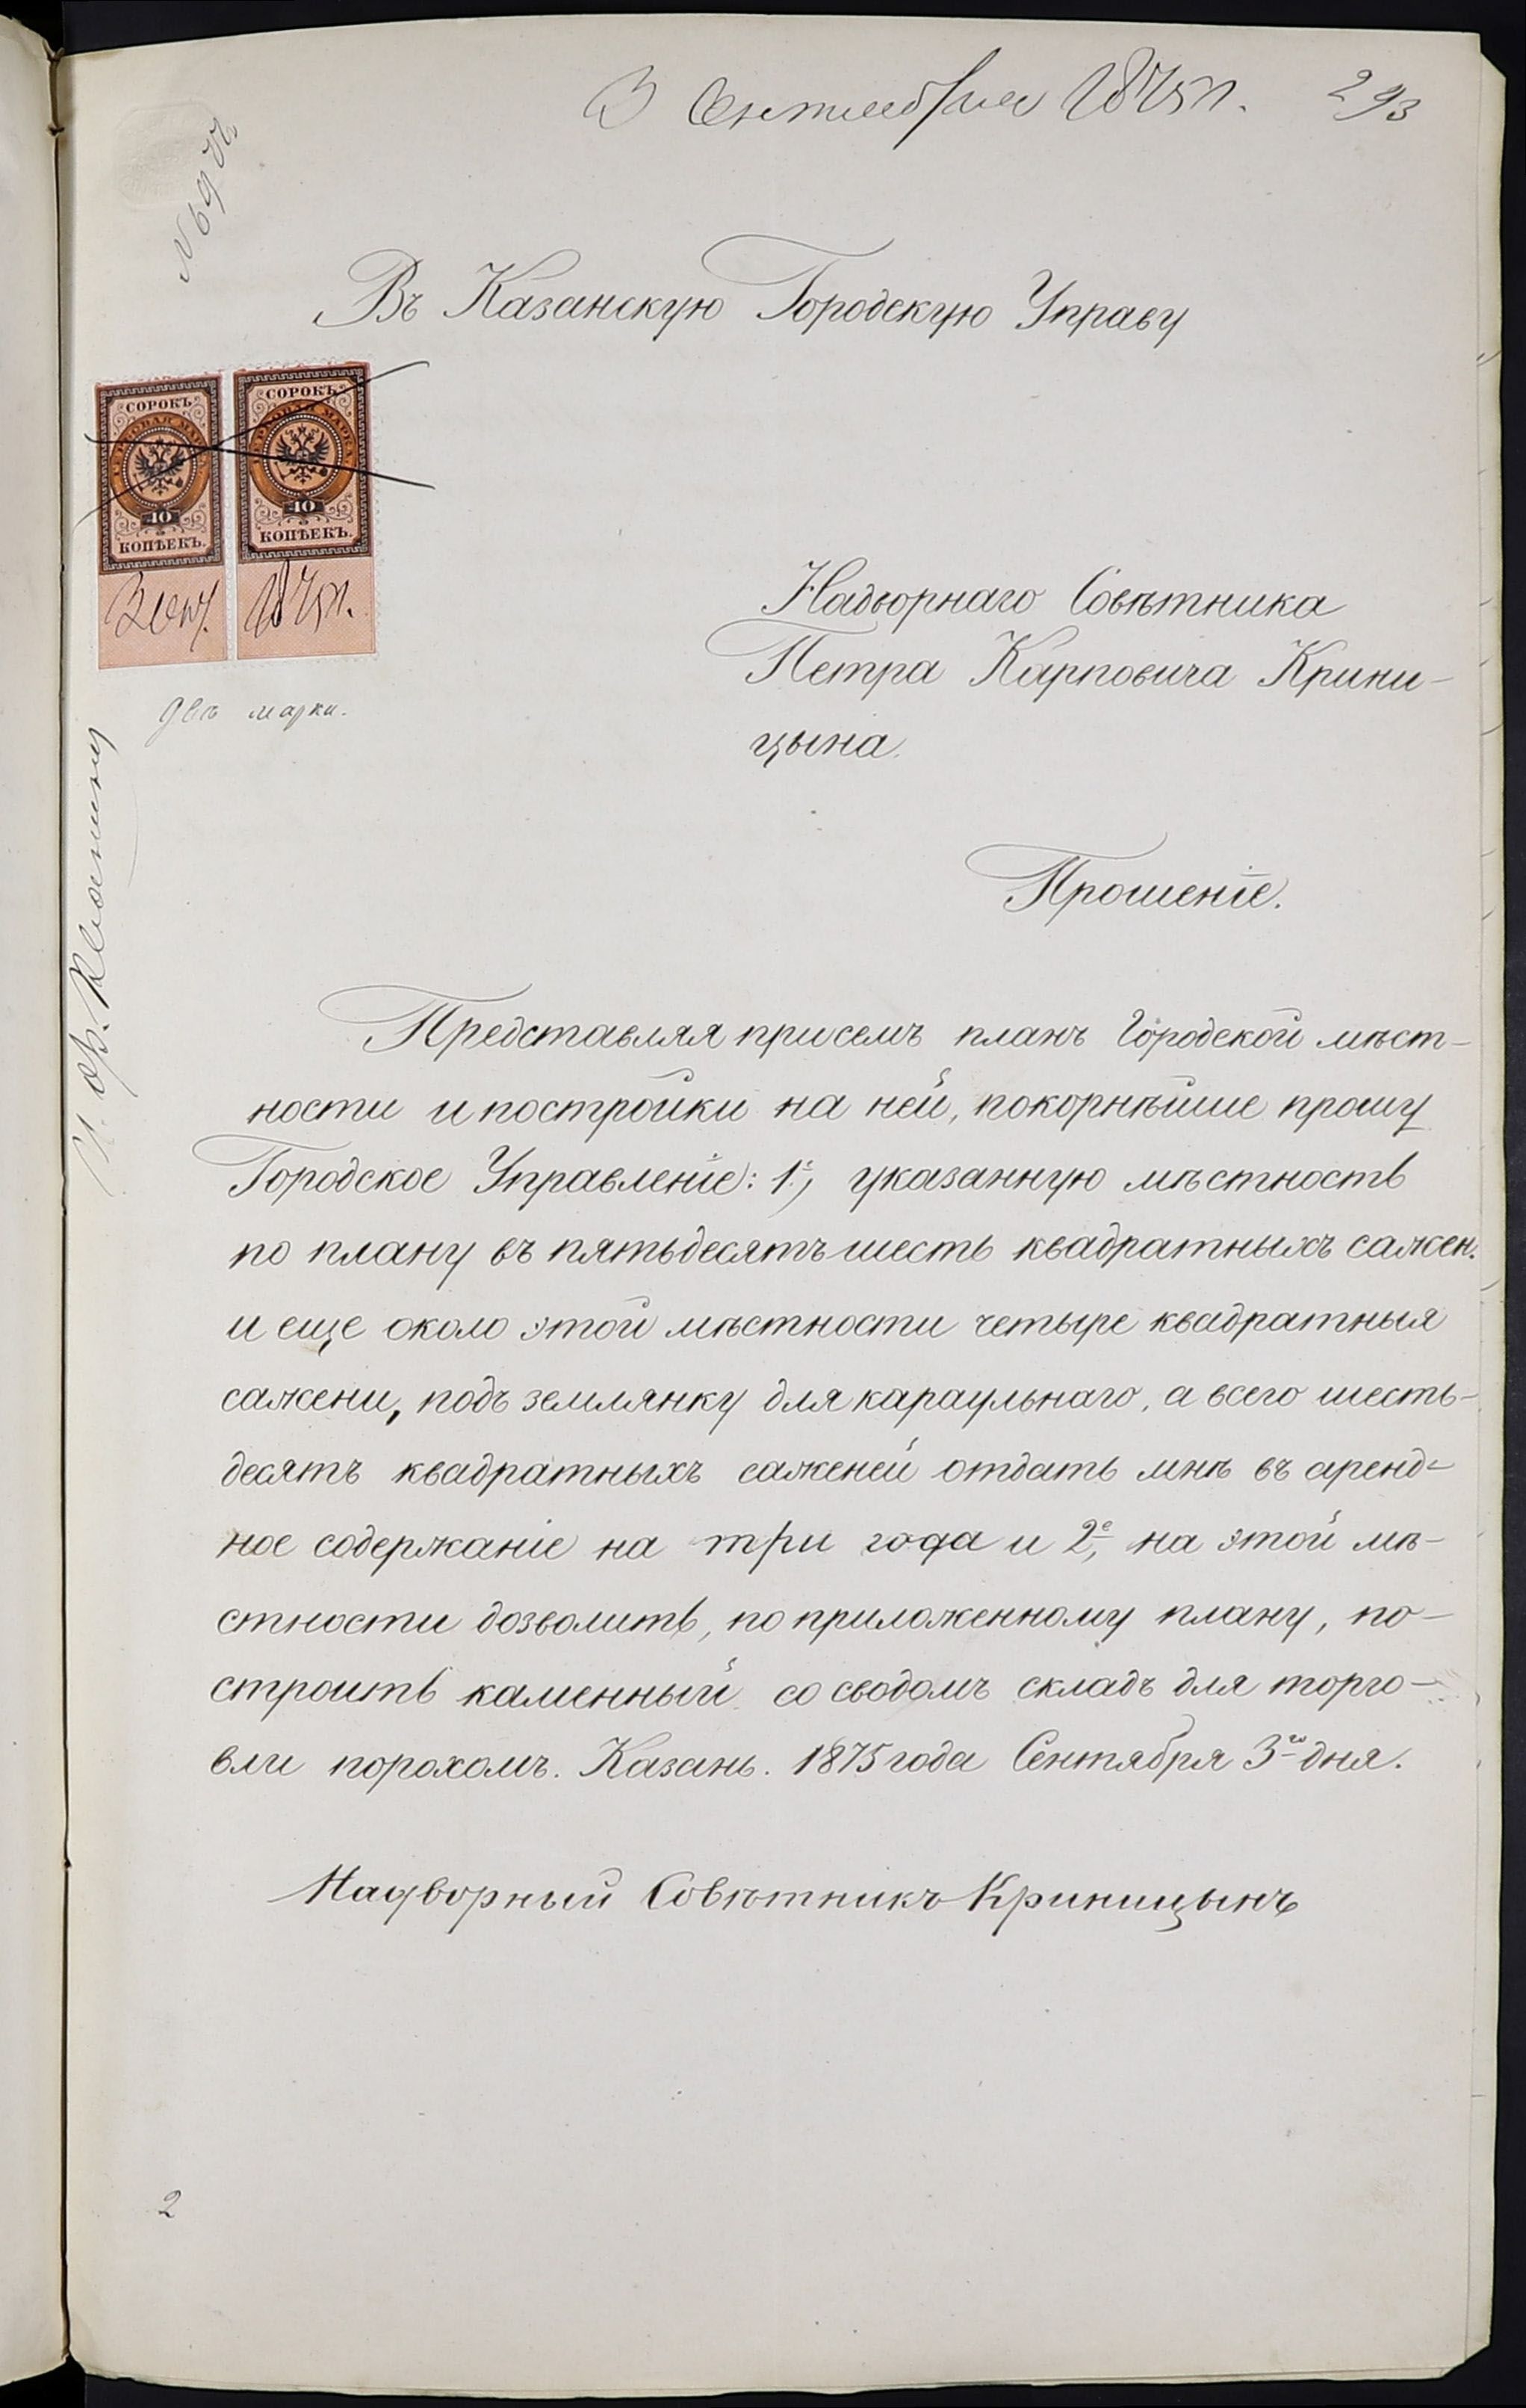 3 Сентября 1875 г. 293
Въ Казанскую Городскую Управу
СОРОКЪ СОРОКЪ
ГЕРБОВАЯ МАРКА ГЕРБОВАЯ МАРКА
40 40
КОПѢЕКЪ. КОПѢЕКЪ.
3 сент. 1875 г.
двѣ марки.
Надворнаго Совѣтника
Петра Карповича Крини-
цына.
Прошеніе.
Представляя присемъ планъ Городской мѣст-
ности и постройки на ней, покорнѣйше прошу
Городское Управленіе: 1е, указанную мѣстность
по плану въ пятьдесятъ шесть квадратныхъ сажен.
и еще около этой мѣстности четыре квадратныя
сажени, подъ землянку для караульнаго, а всего шесть-
десятъ квадратныхъ саженей отдать мнѣ въ аренд-
ное содержаніе на три года и 2е, на этой мѣ-
стности дозволить, по приложенному плану, по-
строить каменный со сводомъ складъ для торго-
вли порохомъ. Казань. 1875 года Сентября 3го дня.
Надворный Совѣтникъ Криницынъ
2